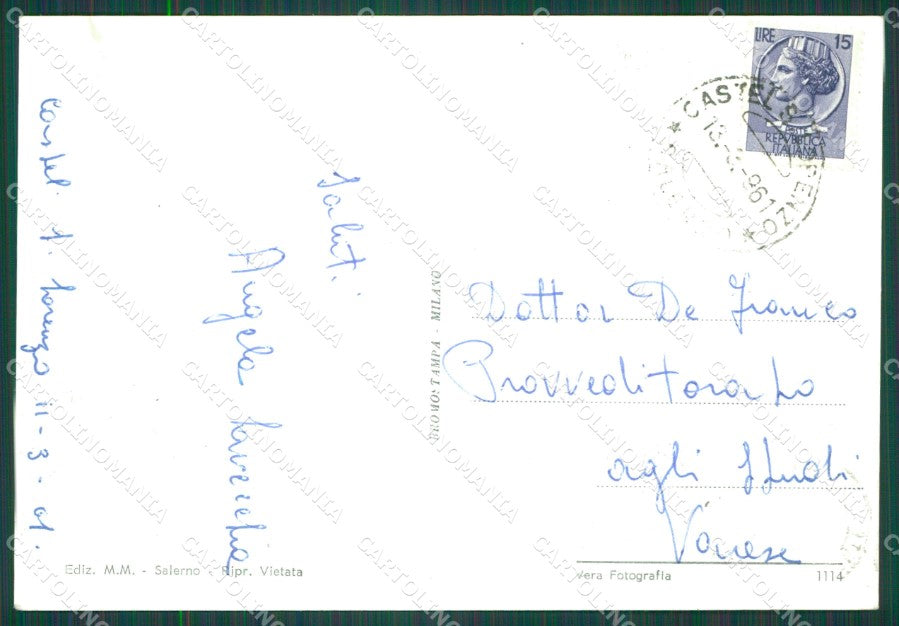 Castel S. Lorenzo 11-3-61.
Saluti
Angela
Dottor De Franco
Provveditorato
agli Studi
Varese
PROMOSTAMPA - MILANO
LIRE 15
REPVBBLICA
ITALIANA
CASTEL S. LORENZO
Ediz. M.M. - Salerno - Ripr. Vietata
Vera Fotografia
1114
CARTOLINOMANIA